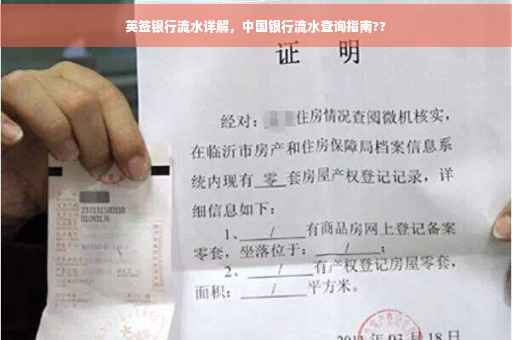 英签银行流水详解，中国银行流水查询指南??
证 明
经对：住房情况查阅微机核实，
在临沂市房产和住房保障局档案信息系
统内现有 零 套房屋产权登记记录，详
细信息如下：
1、 / 有商品房网上登记备案
零套，坐落位于： / ；
2、 / 有产权登记房屋零套，
面积： / 平方米。
年03月18日